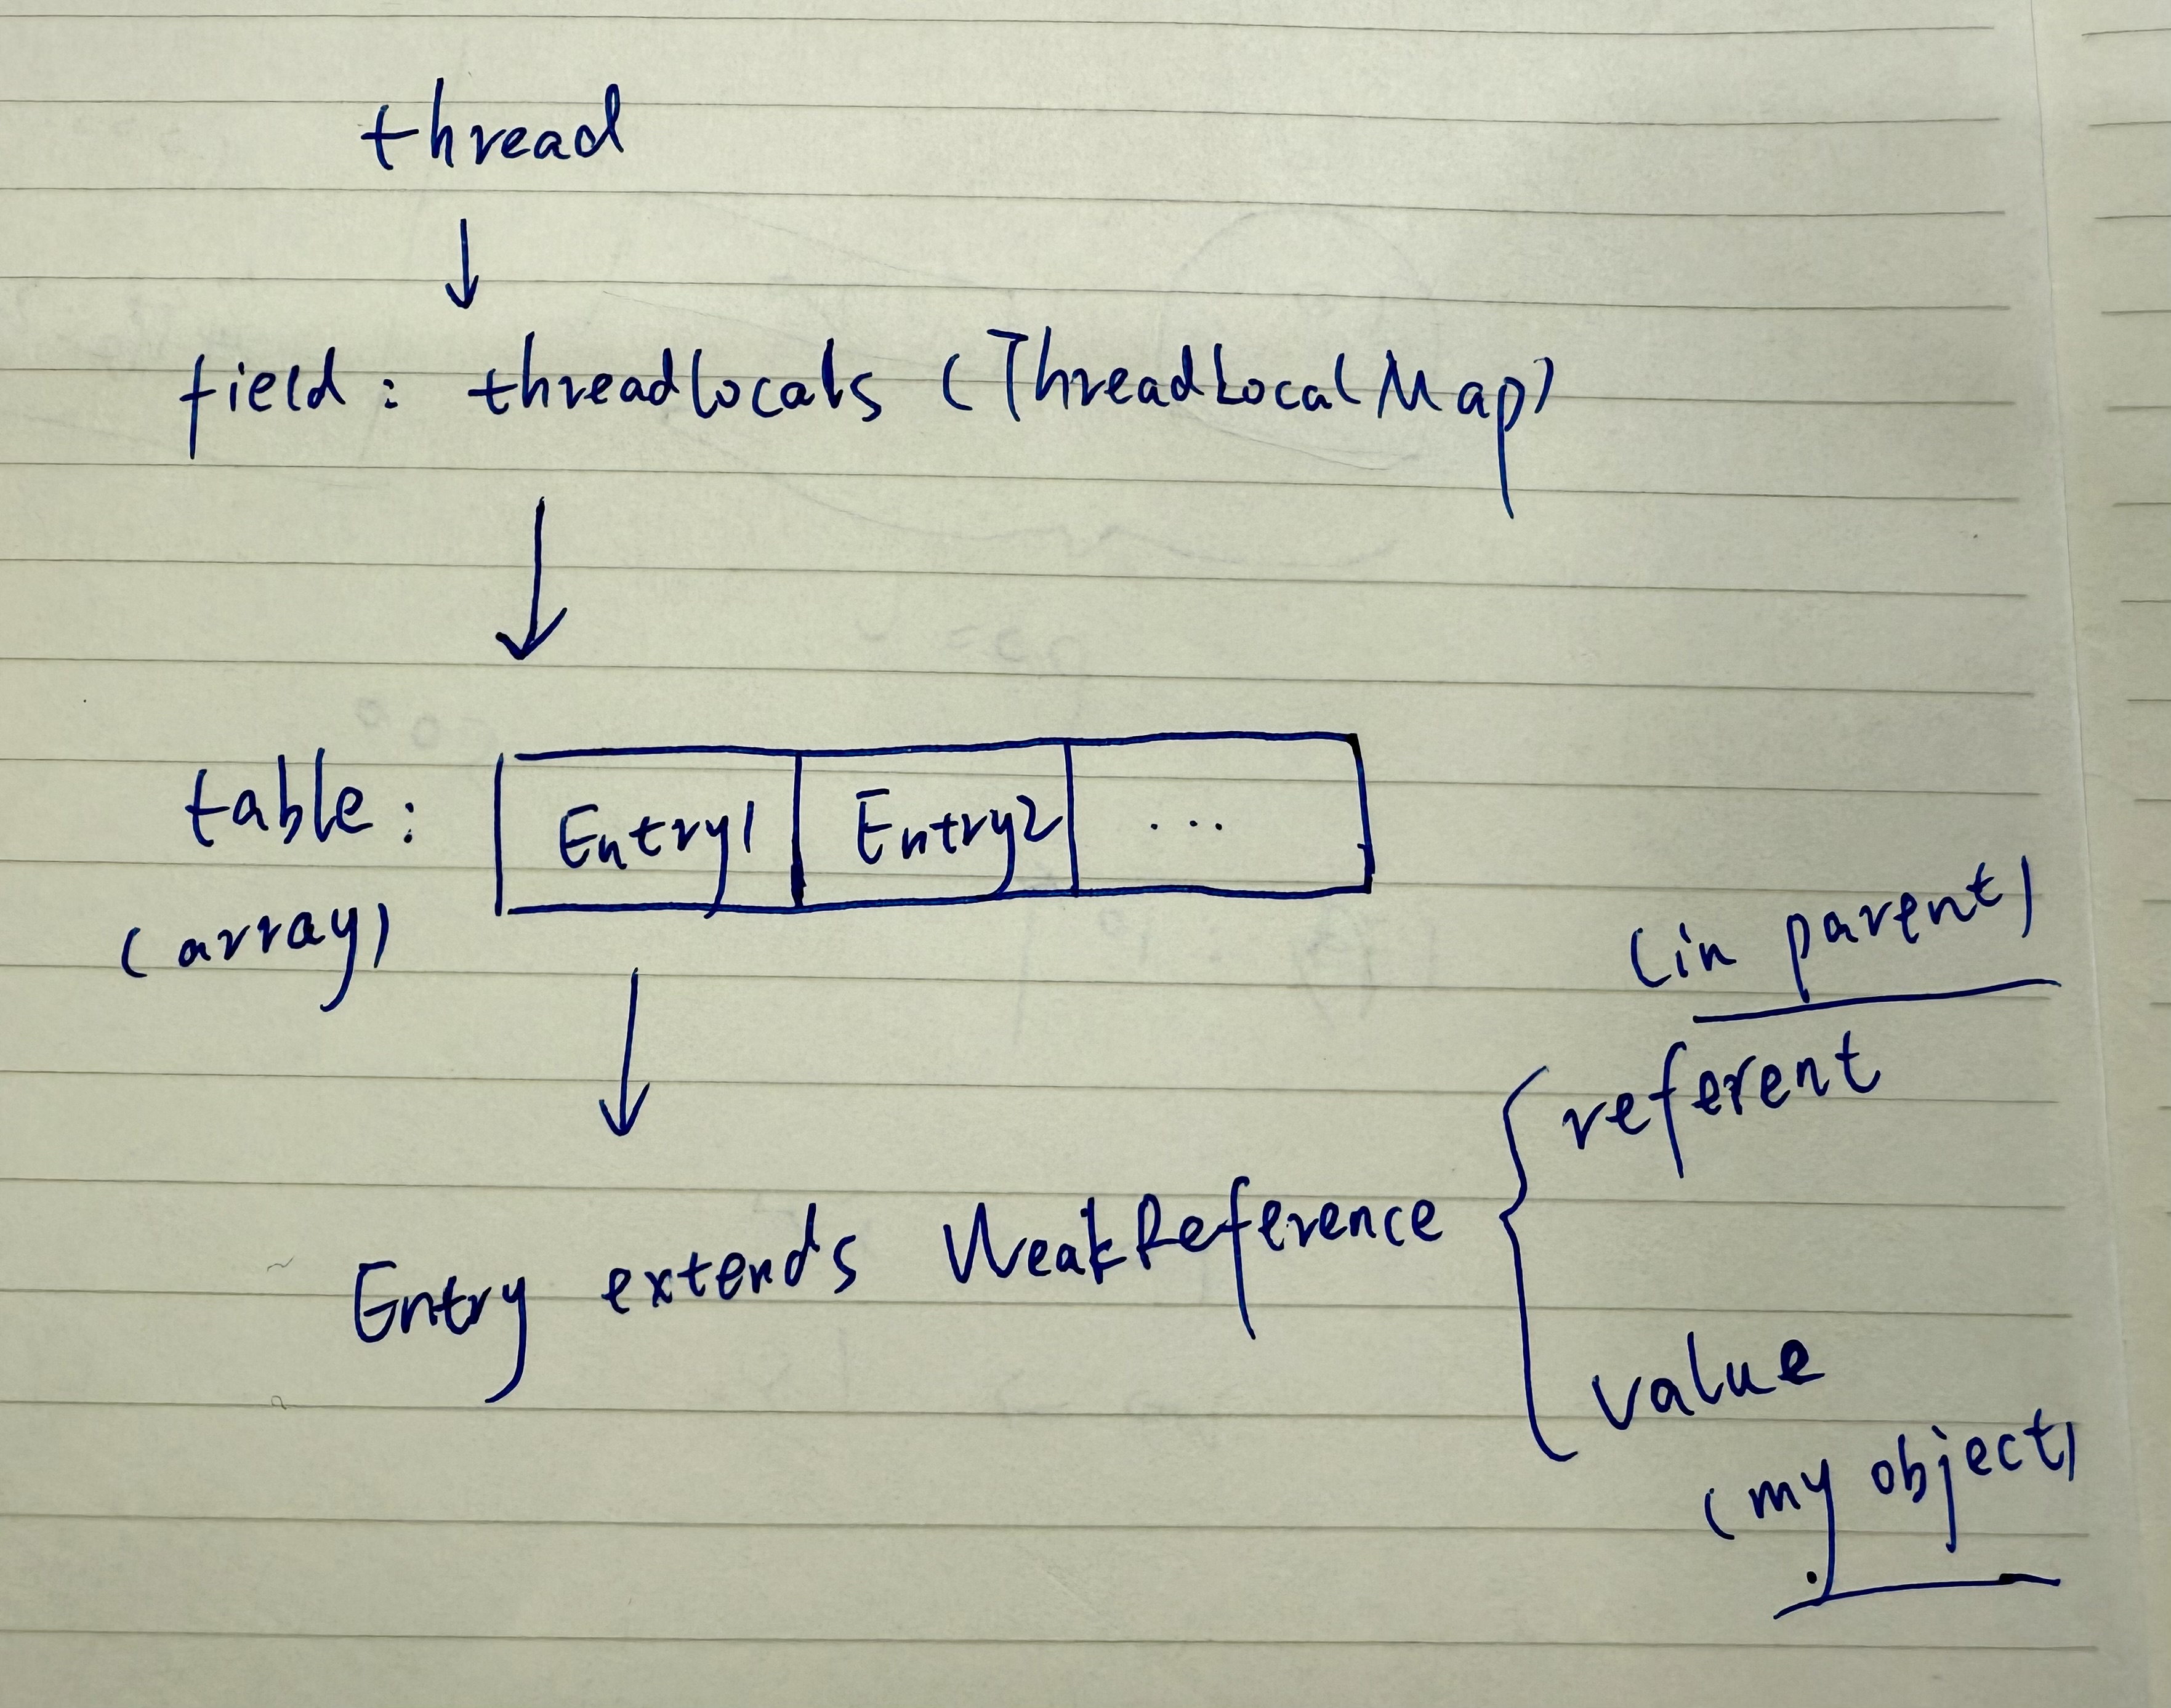 thread
field: threadlocals (ThreadLocalMap)
table: Entry1 Entry2 ...
(array)
(in parent)
referent
Entry extends WeakReference
value
(my object)